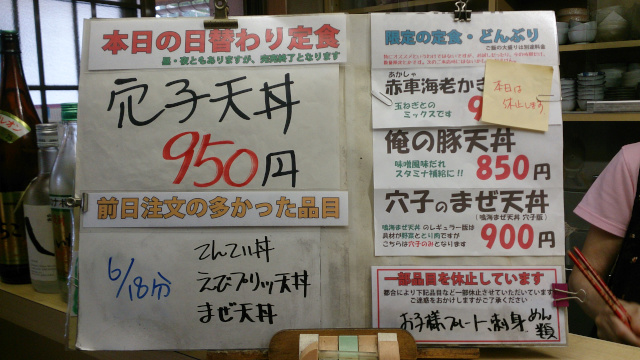 本日の日替わり定食
昼・夜ともありますが、売切終了となります
穴子天丼
950円
前日注文の多かった品目
6/18分
てんてい丼
えびブリッツ天丼
まぜ天丼
限定の定食・どんぶり
ご飯の大盛りは別途料金
あかしゃ
赤車海老かき
玉ねぎとの
ミックスです
本日は
休止します
俺の豚天丼
味噌風味だれ
スタミナ補給に!!
850円
穴子のまぜ天丼
(鳴海まぜ天丼 穴子版)
鳴海まぜ天丼 のレギュラー版は
具材が野菜ととり肉ですが
こちらは穴子のみとなります
900円
一部品目を休止しています
都合により下記品目など一部休止させていただいています
ご迷惑をおかけしますがご了承ください
お子様プレート、刺身、めん類